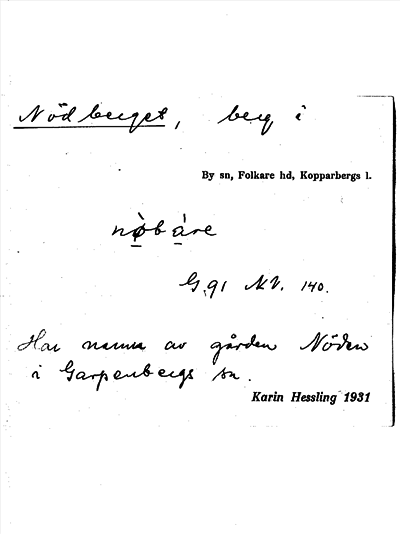 Nödberget, berg i
By sn, Folkare hd, Kopparbergs l.
nø̀báre
G.91 NV. 140.
Har namn av gården Nöden
i Garpenbergs sn.
Karin Hessling 1931